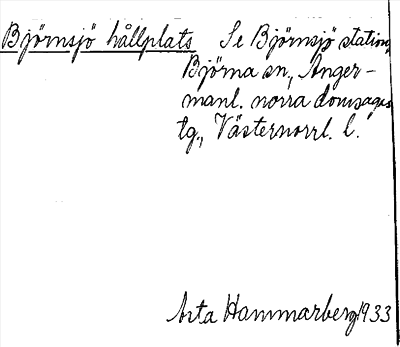 Björnsjö hållplats Se Björnsjö station,
Björna sn, Ånger-
manl. norra domsagas
tg., Västernorrl. l.
Asta Hammarberg 1933